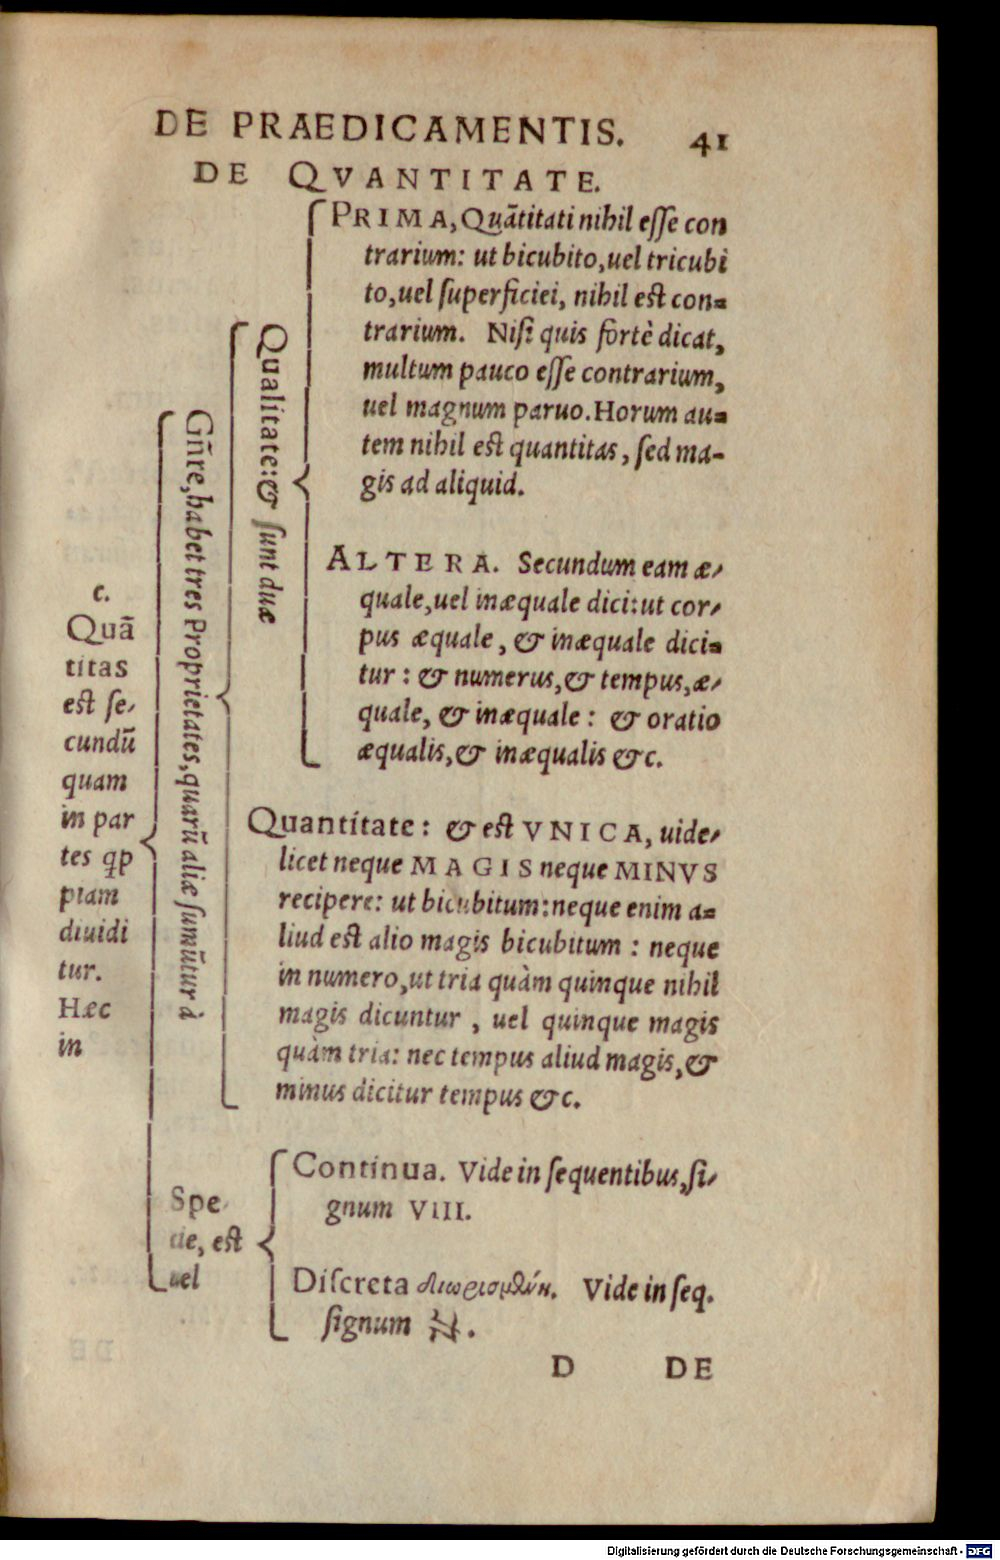 DE PRAEDICAMENTIS. 41
DE QVANTITATE.
c.
Quā
titas
est se-
cundū
quam
in par
tes qp
piam
diuidi
tur.
Hæc
in
Gn̄re, habet tres Proprietates, quarū aliæ sumūtur à
Qualitate: & sunt duæ
PRIMA, Quātitati nihil esse con
trarium: ut bicubito, uel tricubi
to, uel superficiei, nihil est con=
trarium. Nisi quis fortè dicat,
multum pauco esse contrarium,
uel magnum paruo. Horum au=
tem nihil est quantitas, sed ma-
gis ad aliquid.
ALTERA. Secundum eam æ-
quale, uel inæquale dici: ut cor-
pus æquale, & inæquale dici=
tur: & numerus, & tempus, æ-
quale, & inæquale: & oratio
æqualis, & inæqualis &c.
Quantitate: & est VNICA, uide-
licet neque MAGIS neque MINVS
recipere: ut bicubitum: neque enim a=
liud est alio magis bicubitum: neque
in numero, ut tria quàm quinque nihil
magis dicuntur, uel quinque magis
quàm tria: nec tempus aliud magis, &
minus dicitur tempus &c.
Spe-
cie, est
uel
Continua. Vide in sequentibus, si-
gnum VIII.
Discreta Vide in seq.
signum
D DE
Digitalisierung gefördert durch die Deutsche Forschungsgemeinschaft - DFG